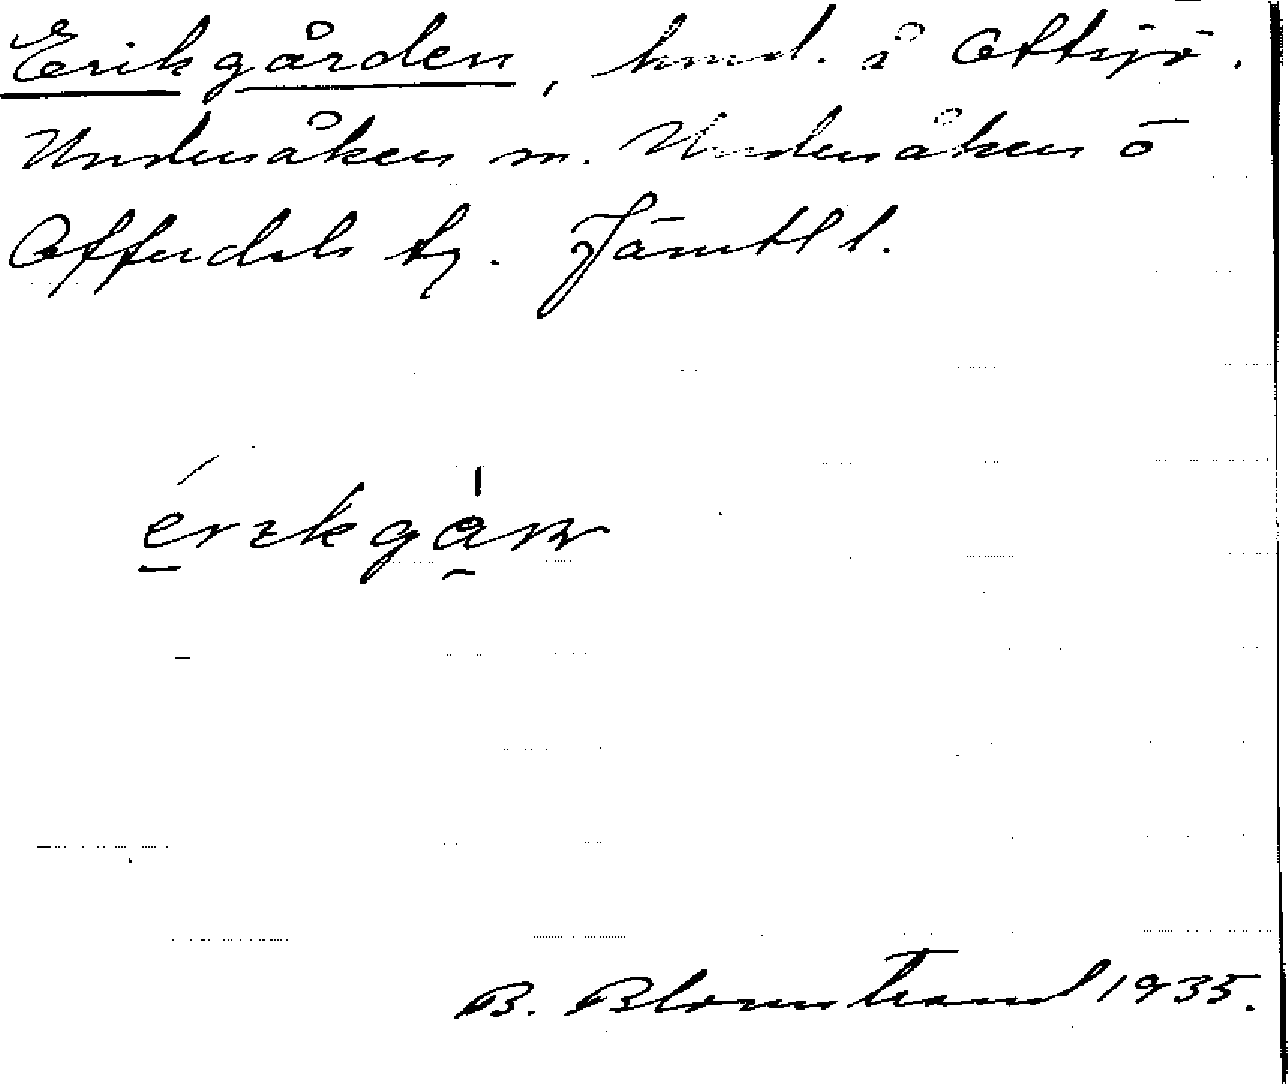 Erikgården, hmd. i Ottsjö.
Undersåkers sn. Undersåkers o
Offerdals tg. Jämtl l.
B. Blomstrand 1935.